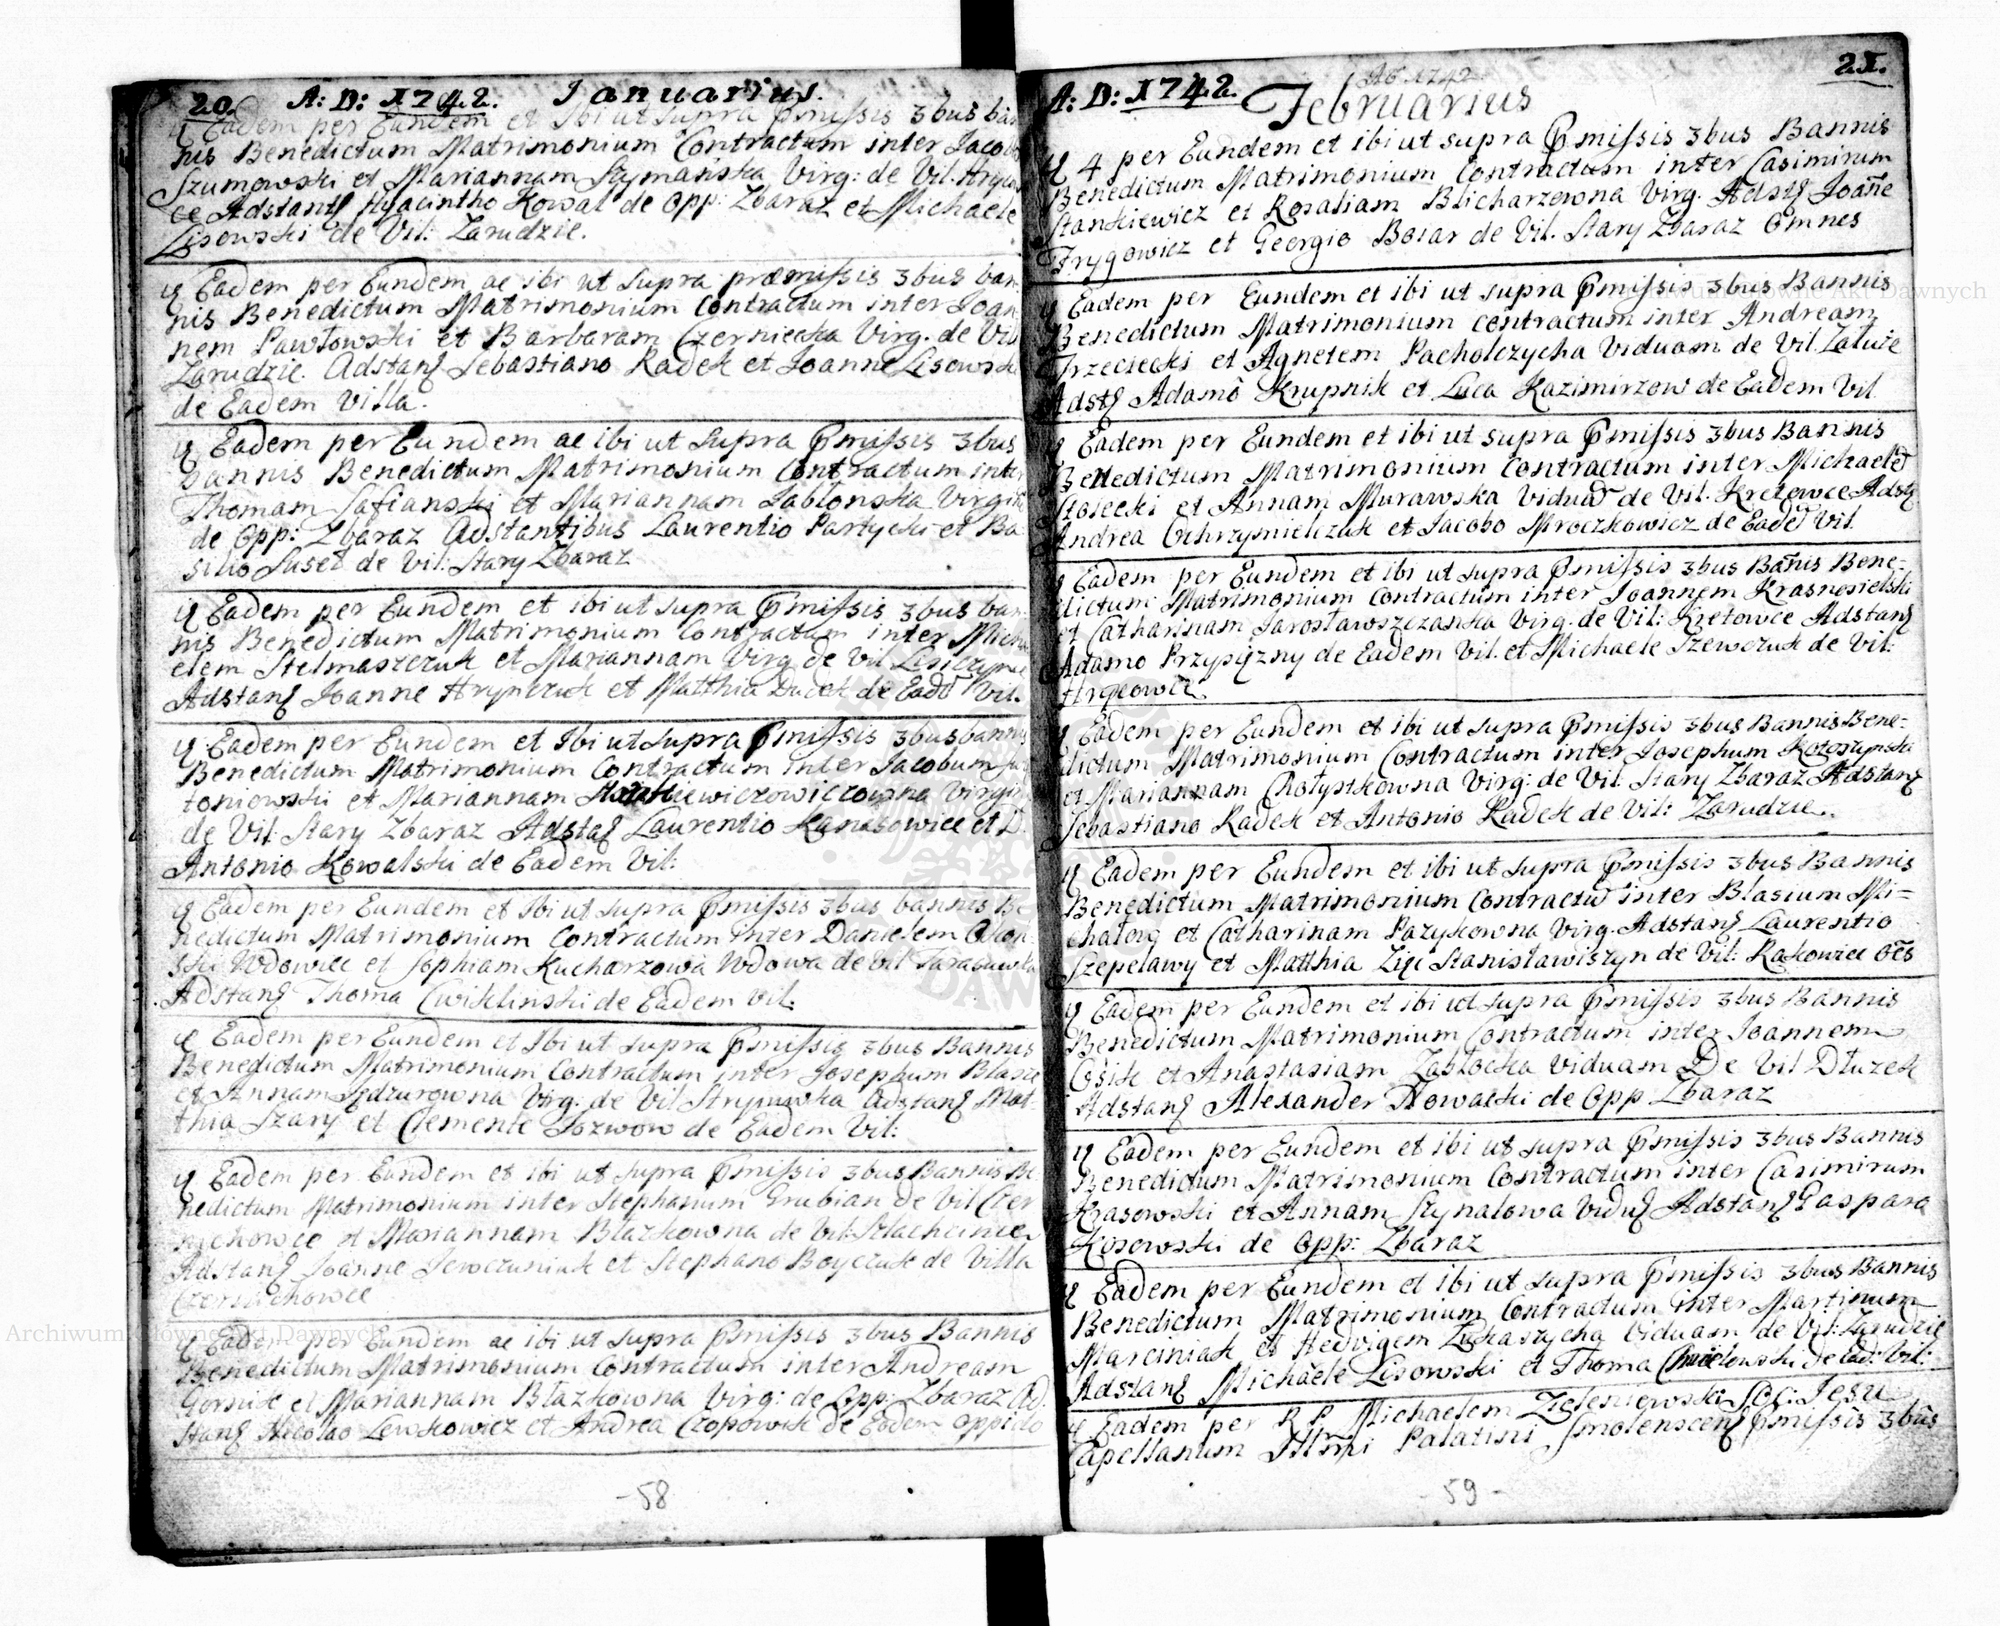 20. A: D: 1742. Januarius.
Eadem per Eundem et Ibi ut supra Pmissis 3bus ban
nis Benedictum Matrimonium Contractum inter Jacob
Szumowski et Mariannam Virg: de Vil:
Adstantq Hyacintho Kowal de Opp: Zbaraz et Michaele
Lisowski de Vil: Zarudzie.
Eadem per Eundem ac ibi ut supra præmissis 3bus ban
nis Benedictum Matrimonium Contractum inter Joan
nem Pawłowski et Barbaram Czerniecka Virg. de Vil
Zarudzie. Adstanq Sebastiano Radek et Joanne Lisowsk
de Eadem Villa.
Eadem per Eundem ac ibi ut supra Pmissis 3bus
bannis Benedictum Matrimonium Contractum inte
Thomam Safianski et Mariannam Jabłonska Virgi
de Opp: Zbaraz Adstantibus Laurentio Partycki et Ba
silio de Vil: Stary Zbaraz
Eadem per Eundem et ibi ut supra Pmissis 3bus ban
nis Benedictum Matrimonium Contractum inter Micha
elem Stelmaszczuk et Mariannam Virg de Vil
Adstanq Joanne Hrynczuk et Matthia Ducek de Eadē Vil.
Eadem per Eundem et Ibi ut supra Pmissis 3bus bannis
Benedictum Matrimonium Contractum inter Jacobum
toniowski et Mariannam Virgin
de Vil: Stary Zbaraz Adstaq Laurentio et D.
Antonio Kowalski de Eadem Vil:
Eadem per Eundem et Ibi ut supra Pmissis 3bus bannis Be
nedictum Matrimonium Contractum inter Danielem
ski Wdowiec et Sophiam Kucharzowa Wdowa de vil
Adstanq Thoma Cwiklinski de Eadem vil.
Eadem per Eundem et Ibi ut supra Pmissis 3bus Bannis
Benedictum Matrimonium Contractum inter Josephum
et Annam Virg: de Vil Adstanq Mat-
thia Szary et Clemente Jozwow de Eadem Vil:
Eadem per Eundem et ibi ut supra Pmissis 3bus Bannis Be
nedictum Matrimonium inter Stephanum Grubian de Vil Czer
niehowce et Mariannam Błazkowna de Vil:
Adstanq Joanne et Stephano Boyczuk de Villa
Czerniehowce
Eadem per Eundem ac ibi ut supra Pmissis 3bus Bannis
Benedictum Matrimonium Contractum inter Andream
Gornik et Mariannam Błazkowna Virg: de Opp: Zbaraz Ad
stanq Nicolao Lewkowicz et Andrea Czopowik de Eadem oppido
-58
A: D: 1742. AD 1742 21.
Februarius
4 per Eundem et ibi ut supra Pmissis 3bus Bannis
Benedictum Matrimonium Contractum inter Casimirum
Stankiewicz et Rosaliam Blicharzowna Virg. Adstq Joañe
Frygowicz et Georgio Boiar de Vil. Stary Zbaraz Omnes
Eadem per Eundem et ibi ut supra Pmissis 3bus Bannis
Benedictum Matrimonium contractum inter Andream
Trzeciecki et Agnetem Pacholczycha Viduam de Vil. Załuże
Adstq Adamo Krupnik et Luca Kazimirzow de Eadem Vil
Eadem per Eundem et ibi ut supra Pmissis 3bus Bannis
Benedictum Matrimonium Contractum inter Michaelē
Stoiecki et Annam Murawska Viduā de Vil. Kretowce Adstq
Andrea Ochrzymieliczuk et Jacobo Mroczkowicz de Eadē Vil.
Eadem per Eundem et ibi ut supra Pmissis 3bus Bañis Bene-
dictum Matrimonium Contractum inter Joannem Krasnosielski
et Catharinam Jarosławszczanka Virg. de Vil: Kretowce Adstanq
Adamo Przysiężny de Eadem Vil. et Michaele Szewczuk de Vil:
Eadem per Eundem et ibi ut supra Pmissis 3bus Bannis Bene=
dictum Matrimonium Contractum inter Josephum
et Mariannam Chołystkowna Virg: de Vil. Stary Zbaraz Adstanq
Sebastiano Radek et Antonio Radek de Vil: Zarudzie.
Eadem per Eundem et ibi ut supra Pmissis 3bus Bannis
Benedictum Matrimonium Contractū inter Blasium Mi=
chalow et Catharinam Pazykowna Virg. Adstanq Laurentio
Szepelawy et Matthia Zięc Stanisławiszyn de Vil: Rakowiec oēs
Eadem per Eundem et ibi ut supra Pmissis 3bus Bannis
Benedictum Matrimonium Contractum inter Joannem
Cosik et Anastasiam Zabłocka Viduam De Vil Dłuzek
Adstanq Alexander Nowacki de Opp Zbaraz
Eadem per Eundem et ibi ut supra Pmissis 3bus Bannis
Benedictum Matrimonium Contractum inter Casimirum
Krasowski et Annam Szynalowa Viduq Adstanq Gaspara
Kosowski de Opp: Zbaraz
Eadem per Eundem et ibi ut supra Pmissis 3bus Bannis
Benedictum Matrimonium Contractum inter Martinum
Marciniak et Hedvigem Łukaszycha Viduam de Vil: Zarudzie
Adstanq Michaele Lisowski et Thoma Chmielowski de Ead: Vil:
Eadem per R P Michaelem Zieleniewski Soc: Jesu
Capellanum Illmi Palatini Smolenscenq Pmissis 3bus
-59-
Archiwum Główne Akt Dawnych
Archiwum Główne Akt Dawnych